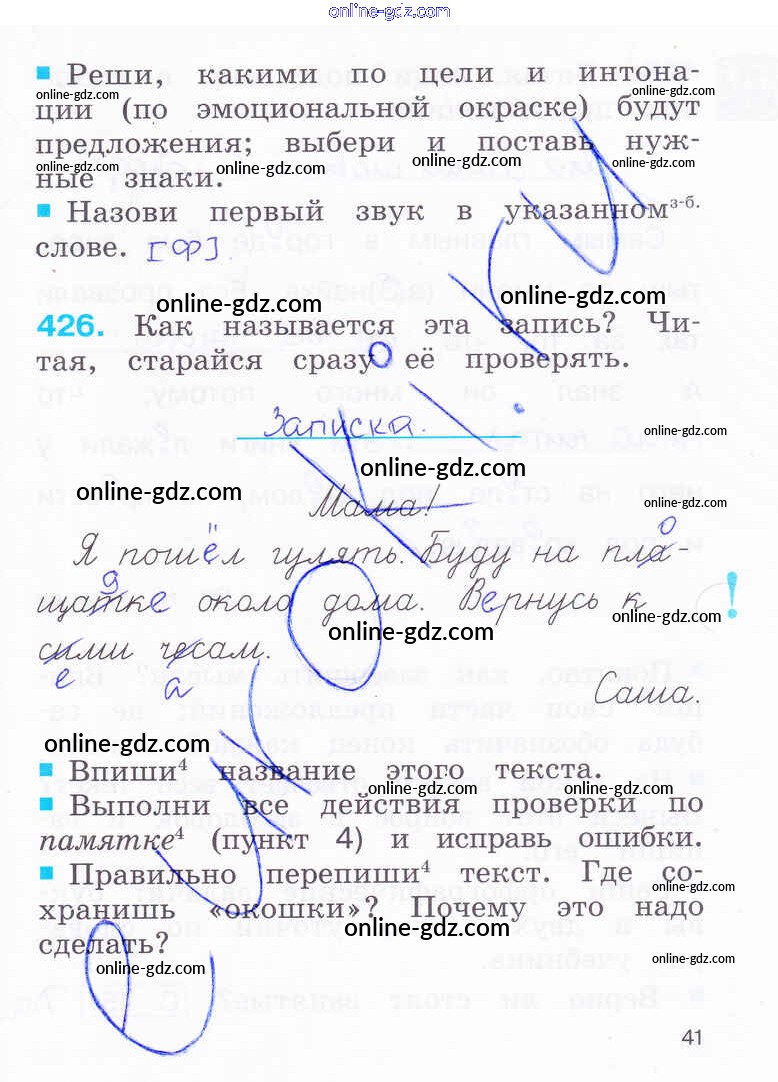 online-gdz.com
Реши, какими по цели и интона-
online-gdz.com online-gdz.com online-gdz.com online-gdz.com
ции (по эмоциональной окраске) будут
предложения; выбери и поставь нуж-
online-gdz.com online-gdz.com online-gdz.com online-gdz.com
ные знаки.
Назови первый звук в указанном з-б.
слове. [ф]
online-gdz.com online-gdz.com
426. Как называется эта запись? Чи-
тая, старайся сразу её проверять.
Записка.
online-gdz.com
online-gdz.com
online-gdz.com
online-gdz.com
Мама!
Я пошёл гулять. Буду на пла-
о
д
щатке около дома. Вернусь к !
online-gdz.com
сими чесам.
е а
Саша.
online-gdz.com
Впиши4 название этого текста.
online-gdz.com online-gdz.com
Выполни все действия проверки по
памятке4 (пункт 4) и исправь ошибки.
online-gdz.com online-gdz.com
Правильно перепиши4 текст. Где со-
хранишь «окошки»? Почему это надо
online-gdz.com
сделать?
online-gdz.com online-gdz.com
41